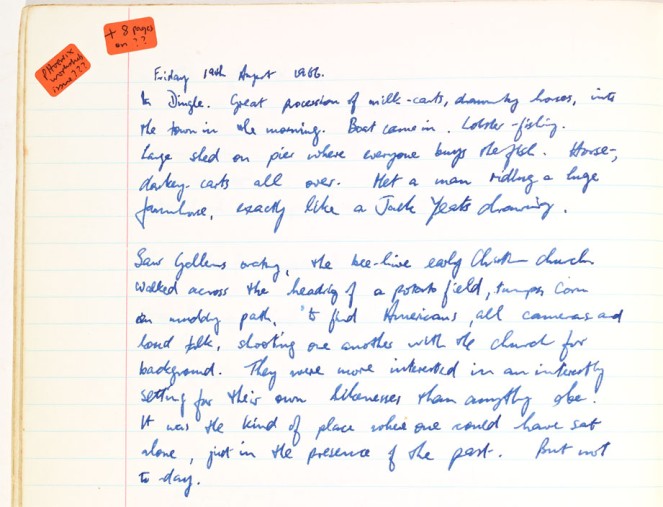 + 8 pages
on ??
Phoenix
workshop
issue ???
Friday 19th August 1966.
In Dingle. Great procession of milk-carts, drawn by horses, into
the town in the morning. Boat came in. Lobster-fishing.
Large shed on pier where everyone buys the fish. Horse-,
donkey-carts all over. Met a man riding a huge
farmhorse, exactly like a Jack Yeats drawing.
Saw Gallerus oratory, the bee-hive early Christian church
walked across the heading of a potato field,
on muddy path, to find Americans, all cameras and
loud talk, shooting one another with the church for
background. They were more interested in an interesting
setting for their own likenesses than anything else.
It was the kind of place where one could have sat
alone, just in the presence of the past. But not
to-day.